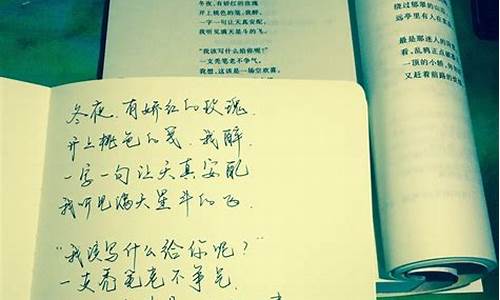 冬夜，有娇红的玫瑰
开上桃色的笺，我醉，
一字一句让天真安配，
我听见满天星斗的飞。
“我该写什么给你呢？”
一支秃笔老不争气，
我想，这该是一场空欢喜，
绕过郁翠的山
远亭里有人在
最是那迷人的
看，乱鸦正点
一顶的小轿，
又赶着前路的
冬夜，有娇红的玫瑰，
开上桃色的笺，我醉，
一字一句让天真安配
我听见满天星斗的飞.
“我该写什么给你呢？”
一支秃笔老不争气.